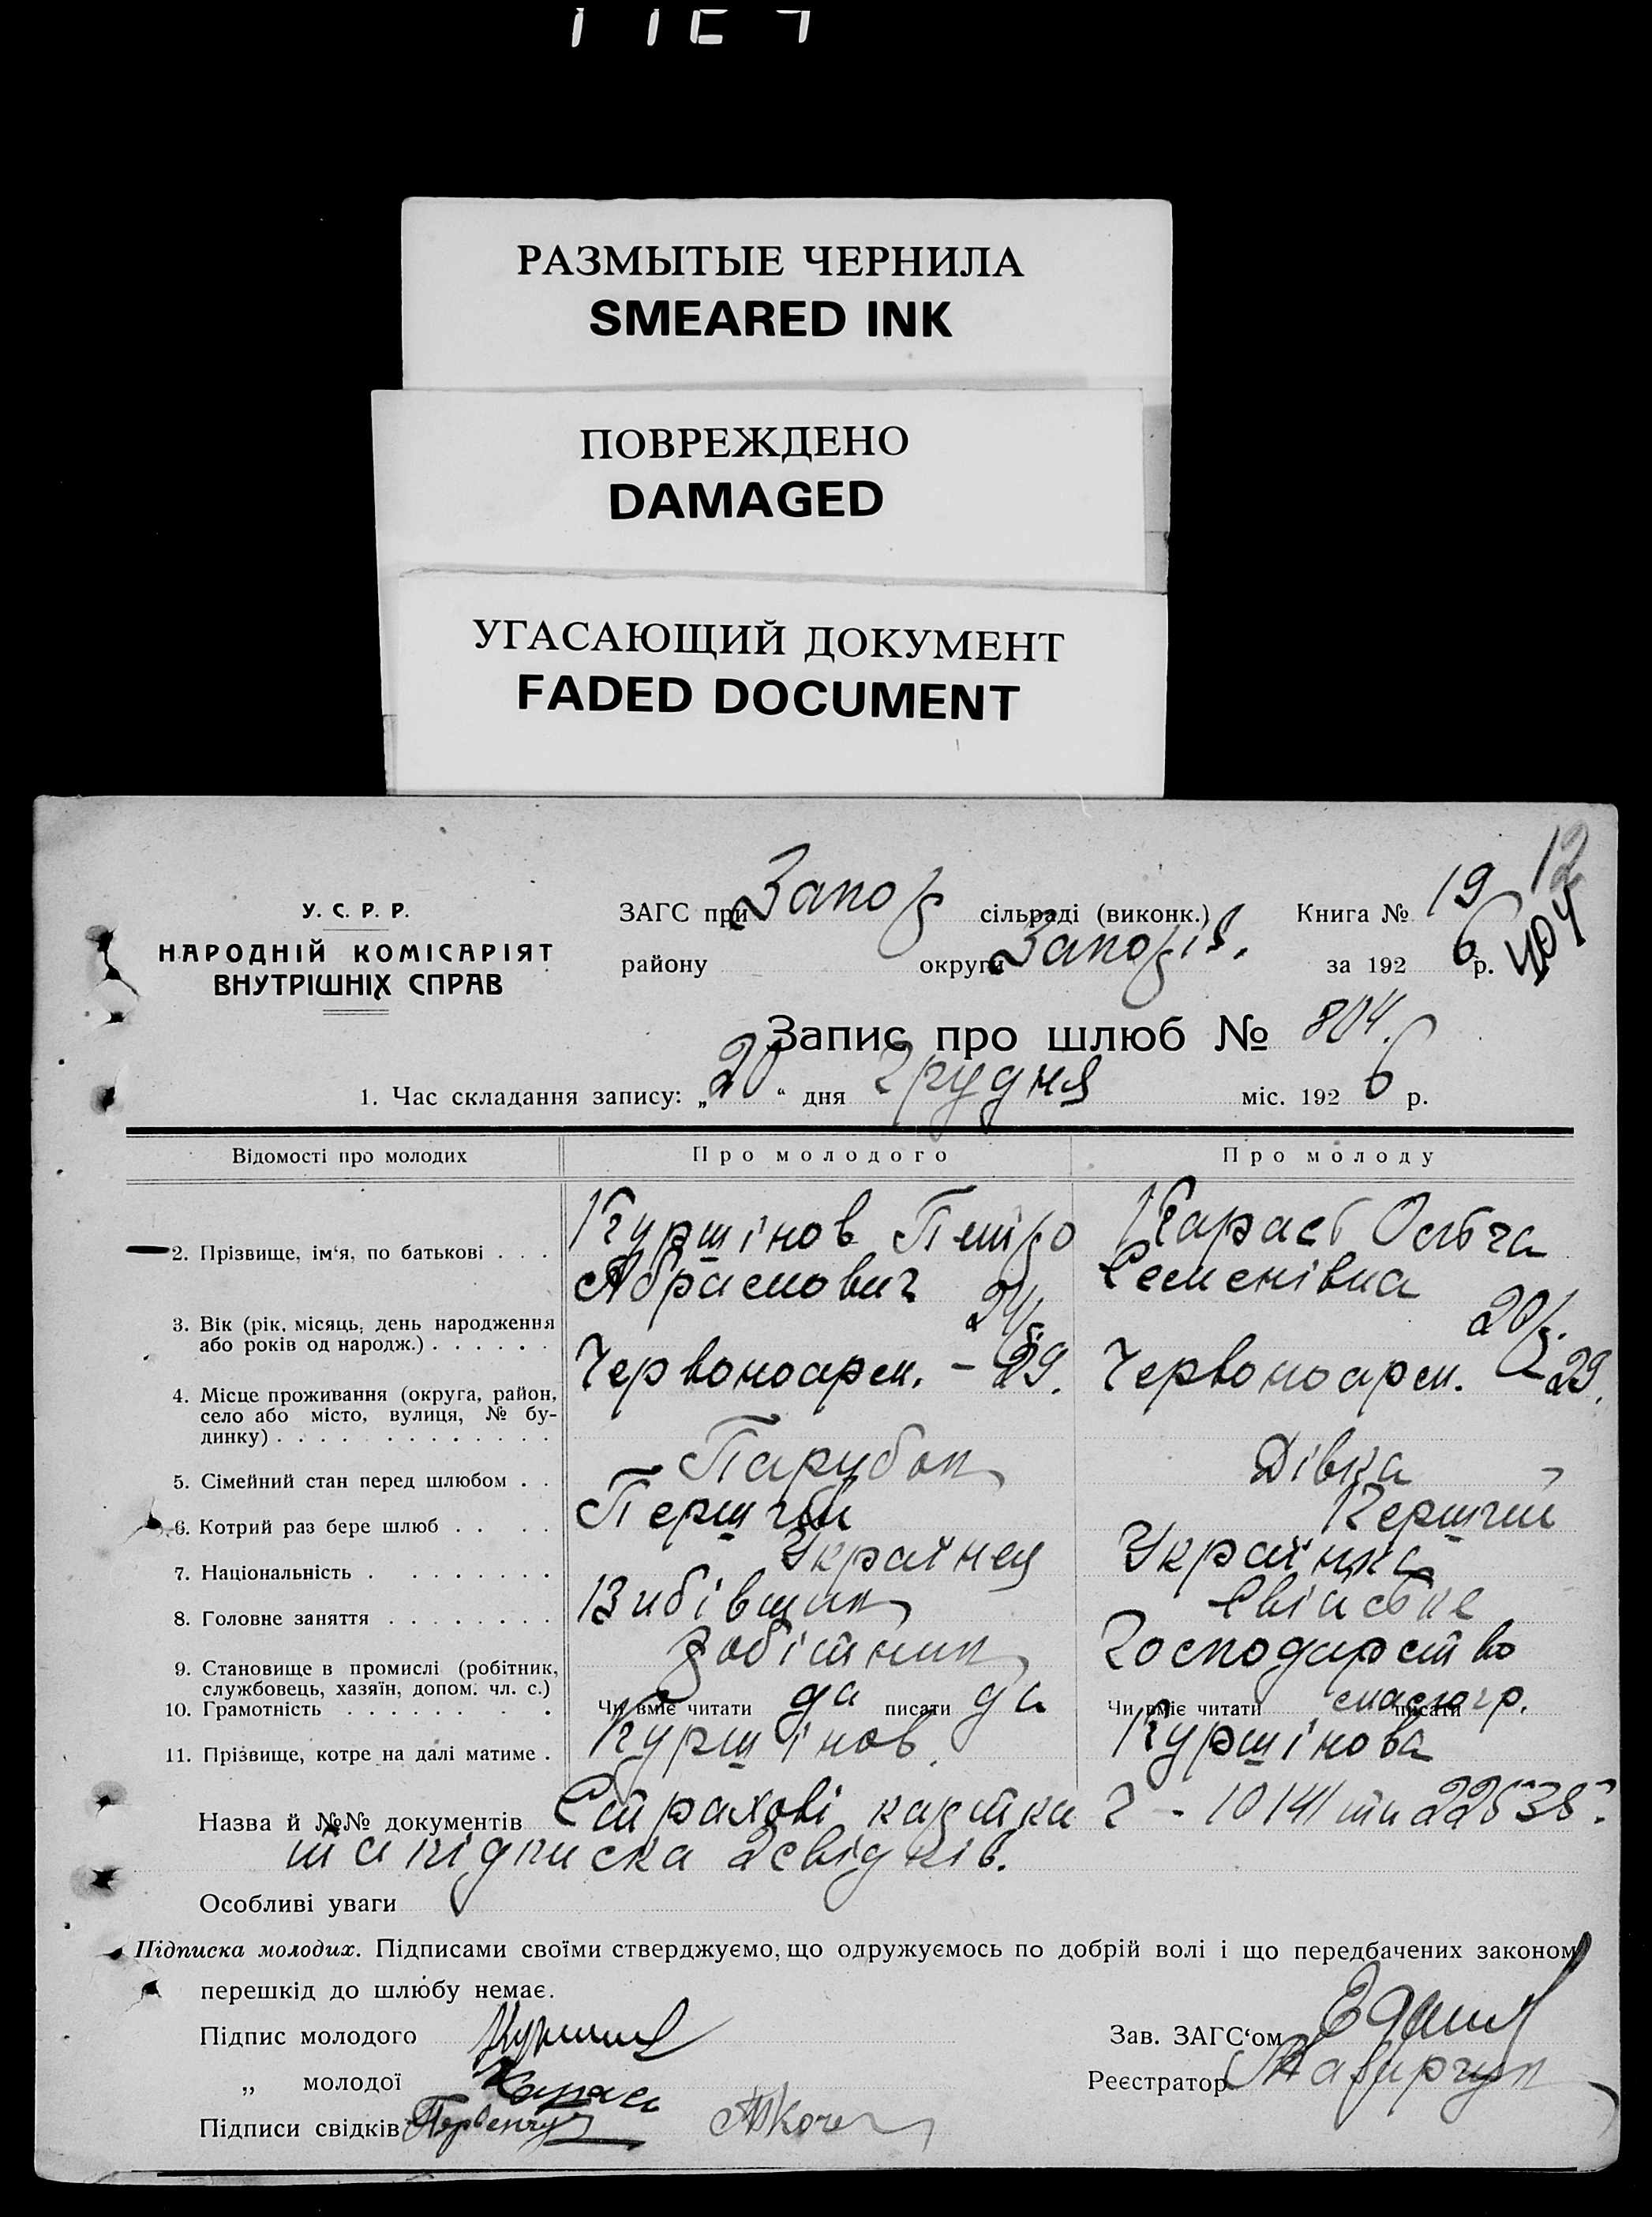 РАЗМЫТЫЕ ЧЕРНИЛА
SMEARED INK
ПОВРЕЖДЕНО
DAMAGED
УГАСАЮЩИЙ ДОКУМЕНТ
FADED DOCUMENT
12
404
У. С. Р. Р.
НАРОДНІЙ КОМІСАРІЯТ
ВНУТРІШНІХ СПРАВ
ЗАГС при Запор сільраді (виконк.) Книга № 19
району округи Запоріз. за 1926 р.
Запис про шлюб № 804.
1. Час складання запису: „20“ дня Грудня міс. 1926 р.
Відомості про молодих Про молодого Про молоду
2. Прізвище, ім‘я, по батькові . . . Куршінов Петро Карась
Абрамович Семенівна
3. Вік (рік, місяць, день народження
або років од народж.) . . . . . .
4. Місце проживання (округа, район, Червоноарм. – 29. Червоноарм. 29.
село або місто, вулиця, № бу-
динку) . . . . . . . . . . . . .
5. Сімейний стан перед шлюбом . . Парубок Дівка
6. Котрий раз бере шлюб . . . . Перший Перший
7. Національність . . . . . . . . Українец Українка
8. Головне заняття . . . . . . . . Вибівщик Свійське
9. Становище в промислі (робітник, робітник Господарство
службовець, хазяїн, допом. чл. с.)
10. Грамотність . . . . . . . . Чи вміє читати да писати да Чи вміє читати писати
11. Прізвище, котре на далі матиме . Куршінов Куршінова
Назва й №№ документів Страхові картки
та підписка 2 свідків.
Особливі уваги
Підписка молодих. Підписами своїми стверджуємо, що одружуємось по добрій волі і що передбачених законом
перешкід до шлюбу немає.
Підпис молодого Зав. ЗАГС‘ом
„ молодої Карась Реєстратор
Підписи свідків